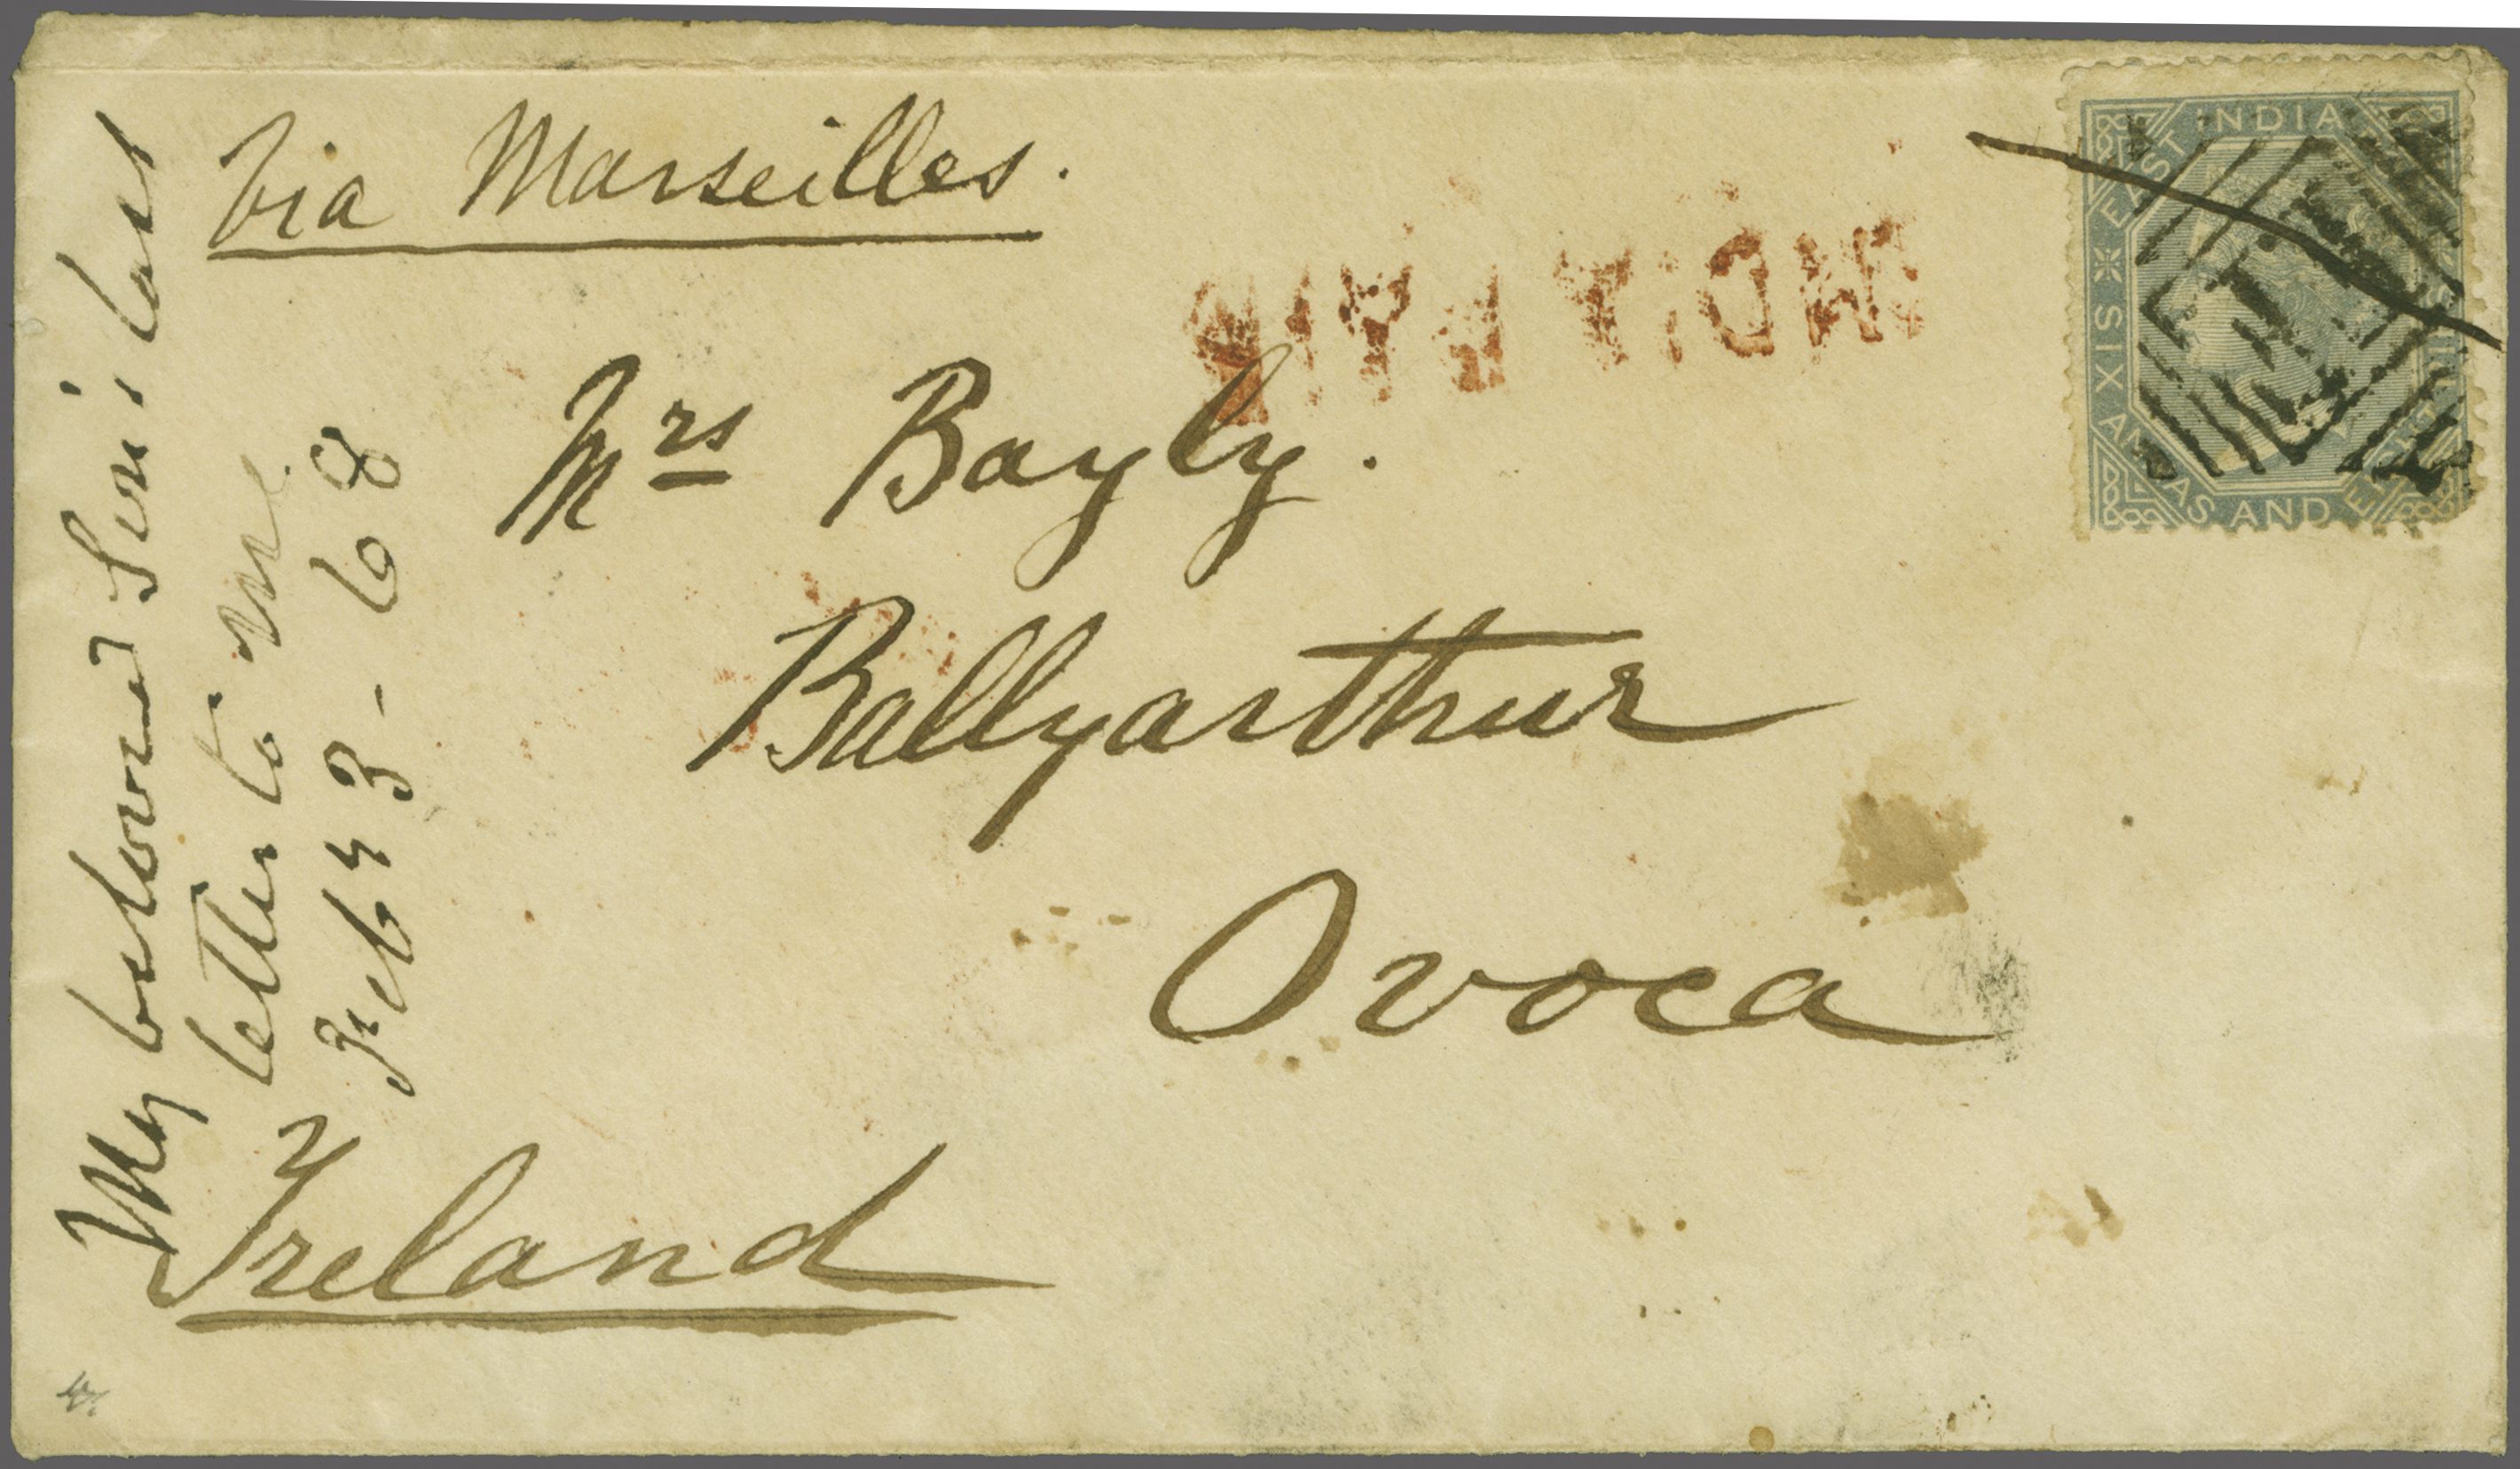 Via Marseilles.
INDIA PAID
Mrs Bayly.
Ballyarthur
Ovoca
Ireland
My beloved Son's last
letter to me
Feby 3 - 68
EAST INDIA
SIX ANNAS AND EIGHT PIES